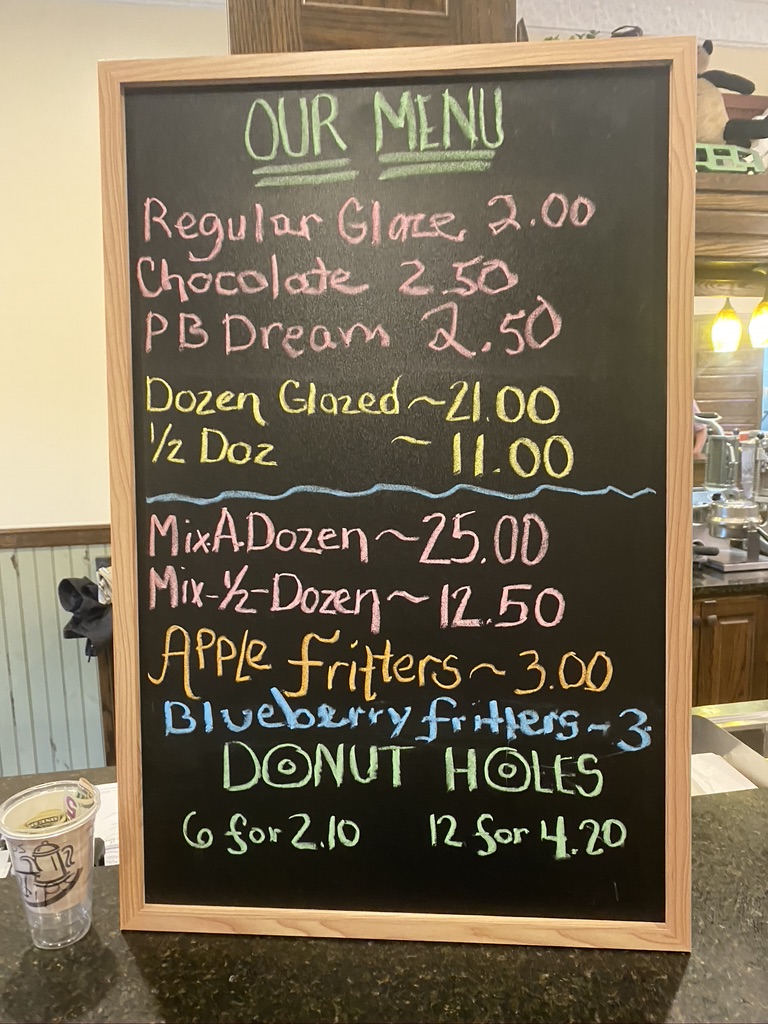 OUR MENU
Regular Glaze 2.00
Chocolate 2.50
PB Dream 2.50
Dozen Glazed ~ 21.00
1/2 Doz ~ 11.00
Mix.A.Dozen ~ 25.00
Mix-1/2-Dozen ~ 12.50
Apple fritters ~ 3.00
Blueberry fritters - 3.
DONUT HOLES
6 for 2.10 12 for 4.20